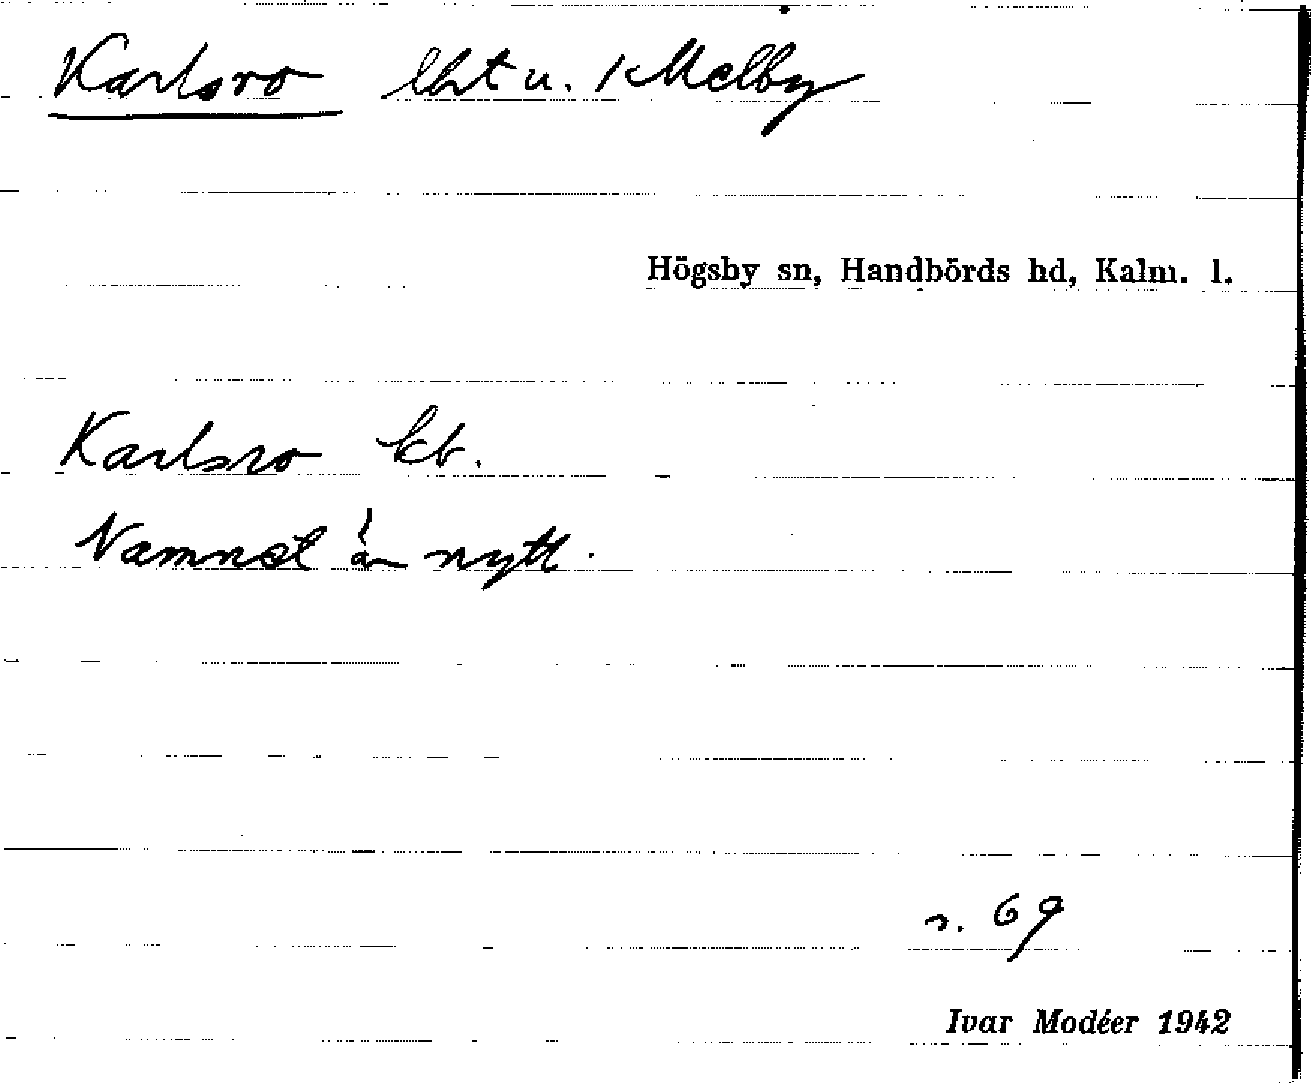 Karlsro lht u. 1 Melby
Högsby sn, Handbörds hd, Kalm. l.
Karlsro
Namnet är nytt.
s. 69
Ivar Modéer 1942